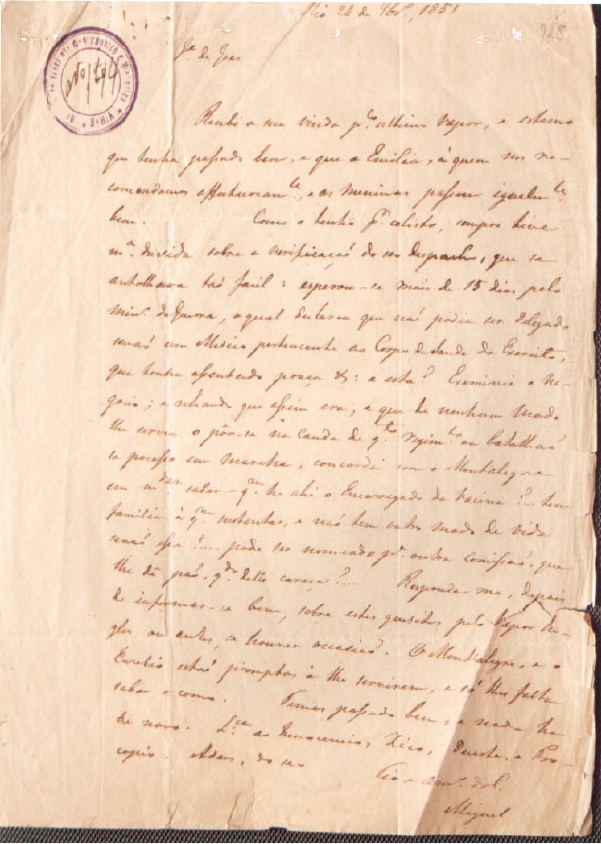 Rio 24 de 9bro, 1851
128.
Recebi a sua vinda pr. ultimo vapor, e estimo
que tenha passado bem, e que a Emilia, á quem nos re-
comendamos affectuosamte, e as meninas passem igualmte
bem. Como o tenho sempre tive
ma duvida sobre a verificaçaõ do seo despacho, que se
antolhava taõ facil: esperou-se mais de 15 dias pelo
Mino da Guerra, o qual declarou que naõ podia ser delegado
senaõ um Medico pertencente ao Corpo de Saude do Exercito,
que tenha assentado praça &: e esta? Examinei o ne-
gocio; e achando que assim era; e que de nenhum modo
lhe servia o pôr-se na cauda de regimto ou batalhaõ
se pozesse em marcha, concordei com o Montalegre
em saber-qm he ahi o Encarregado da Vacina?... tem
familia á qm sustentar, e naõ tem outro modo de vida
senaõ esse?.... póde ser nomeado pa outra comissaõ, que
lhe dê paõ, qdo desta careça?... Responda-me, depois
de informar-se bem, sobre estes quesitos pelo Vapor In-
glez, ou antes, se houver occasiaõ. O Montalegre, e o
Euzebio estaõ promptos á lhe servirem, e só lhes falta
saber o como. Temos passado bem, e nada ha
de novo. ao Innocencio, Xico, Duarte, e Pro-
copio. Adeos, do seo
Tio e amo
Miguel